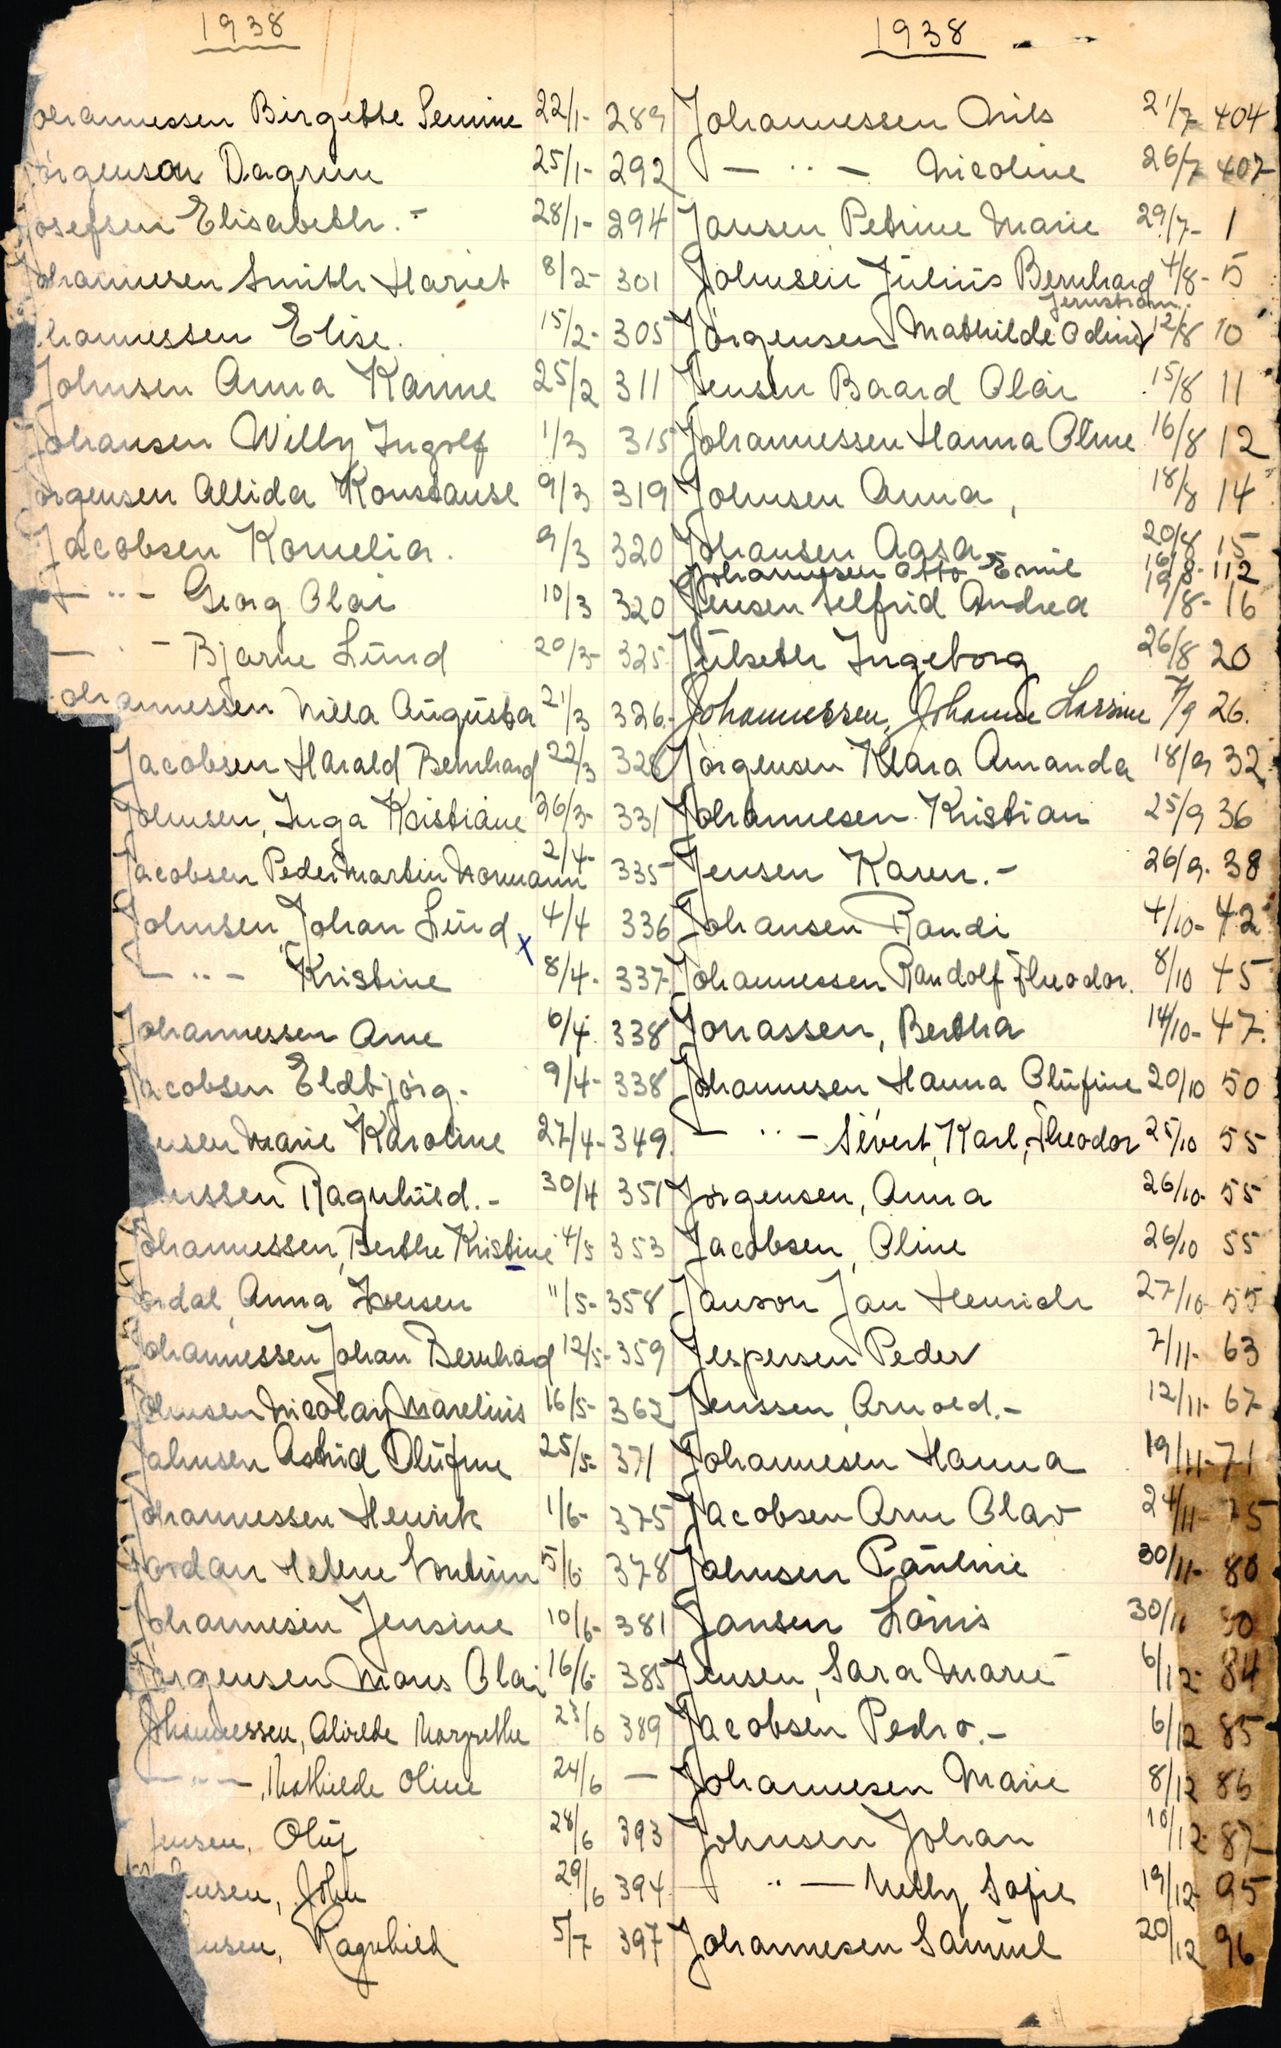 1938
ohannessen Birgitte Semine 22/1- 289
örgensen Dagrun 25/1- 292
Josefsen Elisabeth.- 28/1- 294
Johannesen Smith Hariet 8/2- 301
hannessen Elise. 15/2- 305
Johnsen Anna Karine 25/2 311
Johansen Willy Ingolf 1/3 315
örgensen Allida Konstanse 9/3 319
Jacobsen Kornelia. 9/3 320
— ·· — Georg Olai 10/3 320
— · — Bjarne Lund 20/3- 325
ohannessen Milla Augusta 21/3 326-
Jacobsen Harald Bernhard 22/3 328
Johnsen, Inga Kristiane 26/3- 331
Jacobsen Peder Martin Normann 2/4- 335
Johnsen Johan Lund x 4/4 336
— ·· — Kristine 8/4- 337
Johannessen Arne 6/4 338
Jacobsen Eldbjörg.- 9/4- 338
nsen Marie Karoline 27/4- 349
nssen Ragnhild.- 30/4 351
Johannessen, Berthe Kristine 4/5 353
ördal Anna Iversen 11/5- 358
Johannessen Johan Bernhard 12/5- 359
Johnsen Nicolay Marelius 16/5- 362
Jahnsen Astrid Olufine 25/5- 371
Johannessen Henrik 1/6- 375
Jordan Helene 5/6 378
Johannesen Jensine 10/6- 381
Jörgensen Mons Olai 16/6- 385
Johannessen, Alvilde Margrethe 23/6 389
— ·· —, Mathilde Oline 24/6 —
Jensen, Oluf 28/6 393
nsen, John 29/6 394
nsen, Ragnhild 5/7 397
1938
Johannessen Nils 21/7- 404
— ·· — Nicoline 26/7 407
Jansen Petrine Marie 29/7- 1
Johnsen Julius Bernhard 4/8- 5
Jernstrøm
Jörgensen Mathilde Odine 12/8 10
Jensen Baard Olai 15/8 11
Johannessen Hanna Oline 16/8 12
Johnsen Anna, 18/8 14
Johansen Aasa 20/8 15
Johannesen Otto Emil 16/8- 112
Jensen Selfrid Andrea 19/8- 16
Julseth Ingeborg 26/8 20
Johannessen, Johanne Lassine 7/9 26.
Jörgensen Klara Amanda 18/9 32
Johannesen Kristian 25/9 36
Jensen Karen.- 26/9- 38
Johansen Randi 4/10- 42
Johannessen Randolf Theodor. 8/10 45
Jonassen, Bertha 14/10- 47.
Johannesen Hanna Olufine 20/10 50
— ·· — Sivert, Karl, Theodor 25/10 55
Jørgensen, Anna 26/10- 55
Jacobsen, Oline 26/10 55
Janson Jan Henrich 27/10- 55
Jespersen Peder 7/11- 63
Jenssen Arnold.- 12/11- 67
Johannesen Hanna 19/11- 71
Jacobsen Arne Olav 24/11- 75
Jahnsen Pauline 30/11- 80
Jansen Louis 30/11 80
Jensen, Sara Marie 6/12- 84
Jacobsen Pedro.- 6/12 85
Johannesen Marie 8/12 86
Johnsen Johan 10/12- 87
— ·· — Nelly Sofie 19/12- 95
Johannesen Samuel 20/12 96